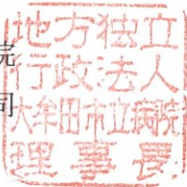 地方独立
行政法人
大牟田市立病院
理事長
院
司